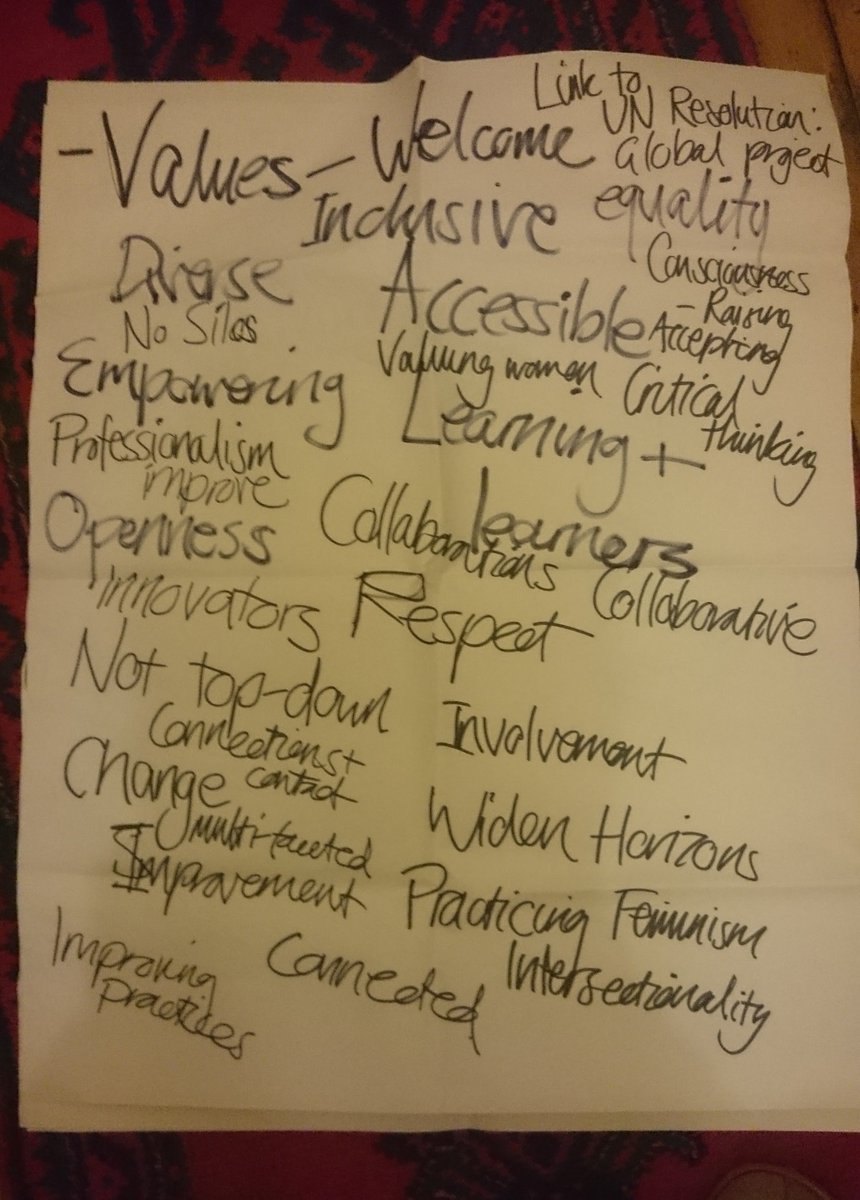 Link to
UN Resolution:
Global project
- Values - Welcome
Inclusive equality
Consciousness
- Raising
Diverse Accessible
No Silos
Accepting
Empowering Valuing women
Critical
thinking
Learning +
learners
Professionalism
improve
Openness Collaborations
Collaborative
innovators Respect
Not top-down
Involvement
Connections +
contact
Change
multi-faceted
Widen Horizons
Improvement
Practicing Feminism
Intersectionality
Improving
practices
Connected